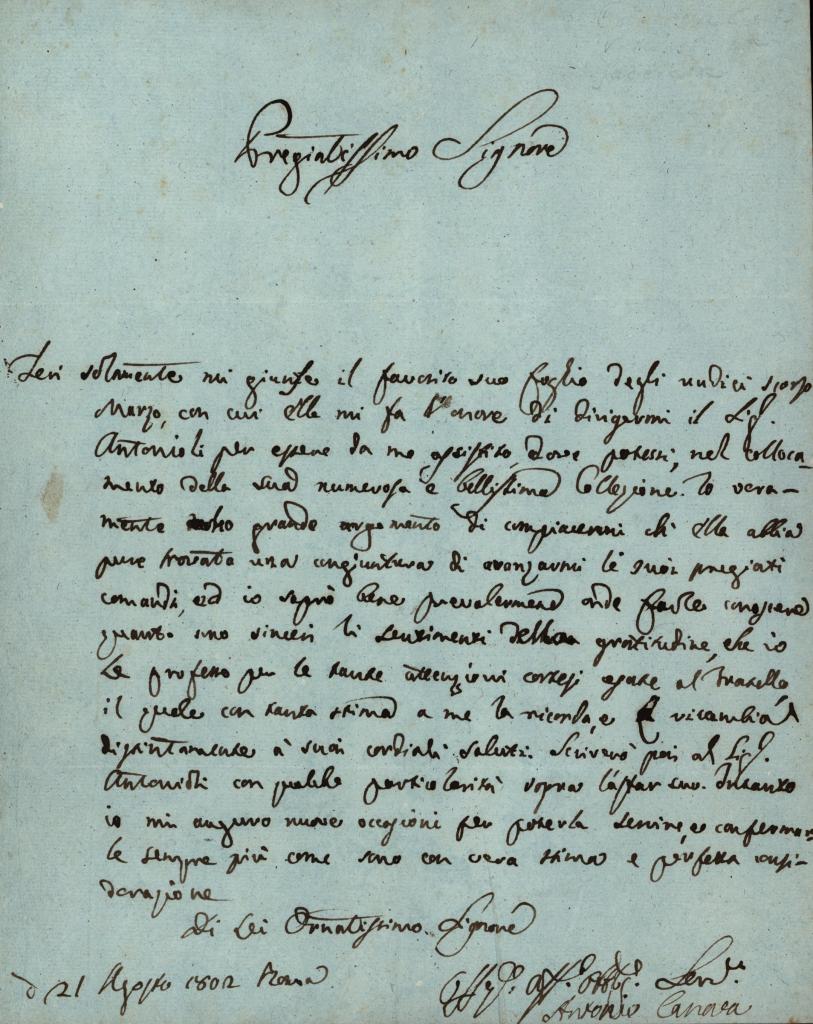 Pregiatissimo Signore
Ieri solamente mi giunse il favorito suo foglio degli undici scorso
Marzo, con cui ella mi fa l'onore di dirigermi il Sig.r
Antonioli per essere da me assistito, dove potessi, nel colloca-
mento della sua numerosa e bellissima Collezione. Io vera-
mente ho grande argomento di compiacermi ch'ella abbia
pure trovata una congiuntura di avanzarmi li suoi pregiati
comandi, ed io saprò bene prevalermene onde farle conoscere
quanto sono sinceri li sentimenti della gratitudine, che io
Le professo per le tante attenzioni cortesi usate al fratello,
il quale con tanta stima a me la ricorda, e ricambia
distintamente a' suoi cordiali saluti. Scriverò poi al Sig.r
Antonioli con qualche particolarità sopra l'affar suo. Intanto
io mi auguro nuove occasioni per poterla servire, e confermar-
le sempre più come sono con vera stima e perfetta consi-
derazione
Di Lei Ornatissimo Signore
21 Agosto 1802 Roma
Serv.re
Antonio Canova